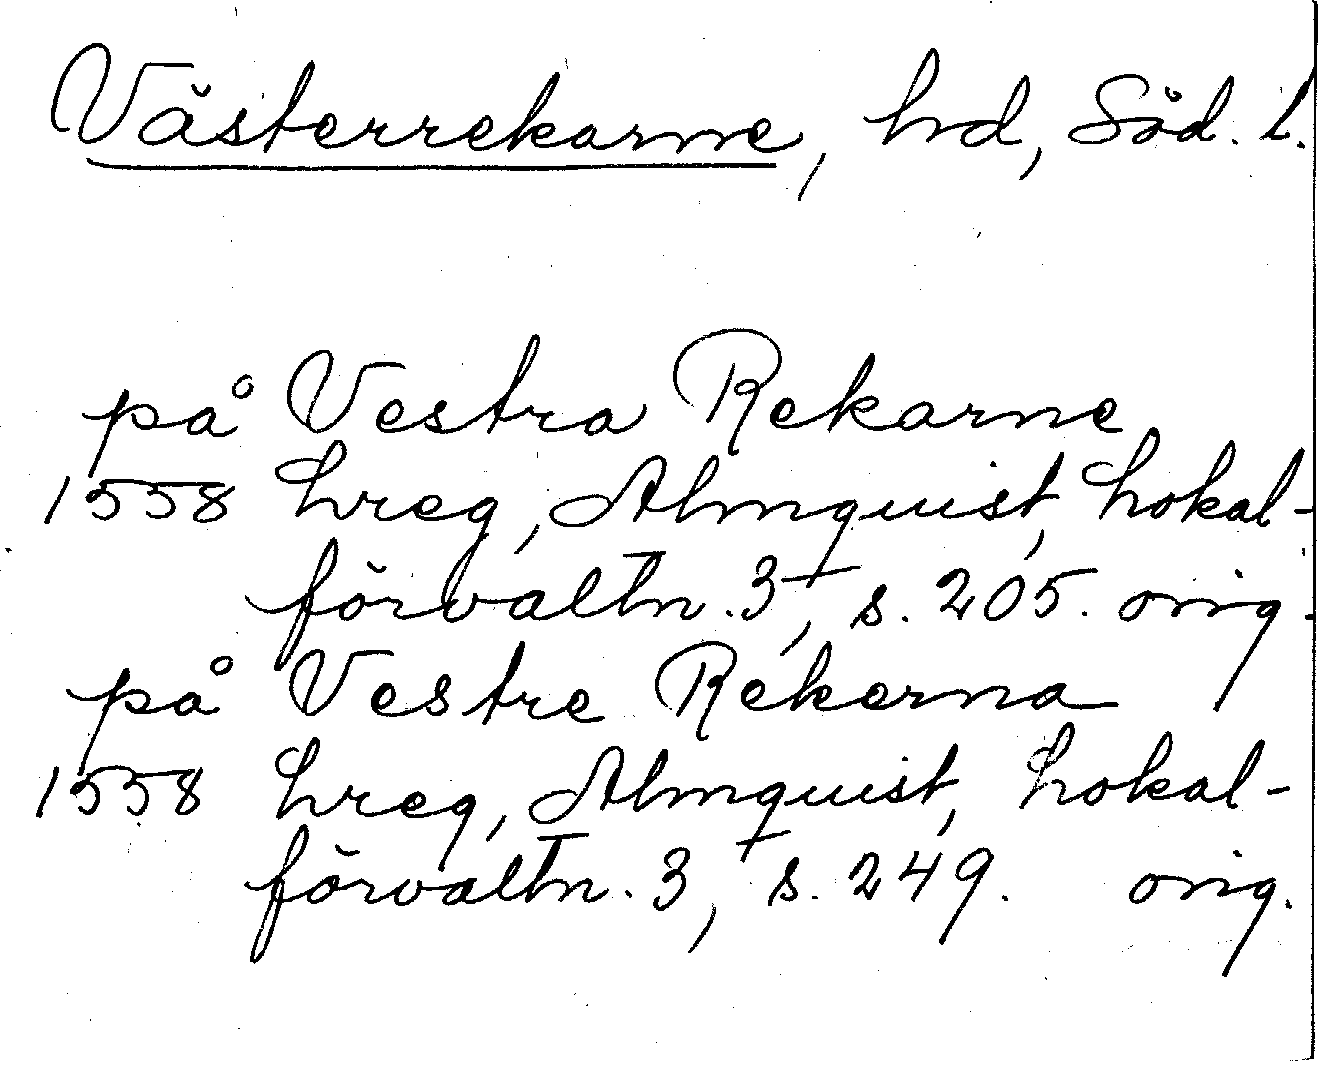 Västerrekarne, hd, Söd. l.
på Vestra Rekarne
1558 Lreg, Almquist, Lokal-
förvaltn. 3, s. 205. orig.
på Vestre Rekerna
1558 Lreg, Almquist, Lokal-
förvaltn. 3, s. 249. orig.